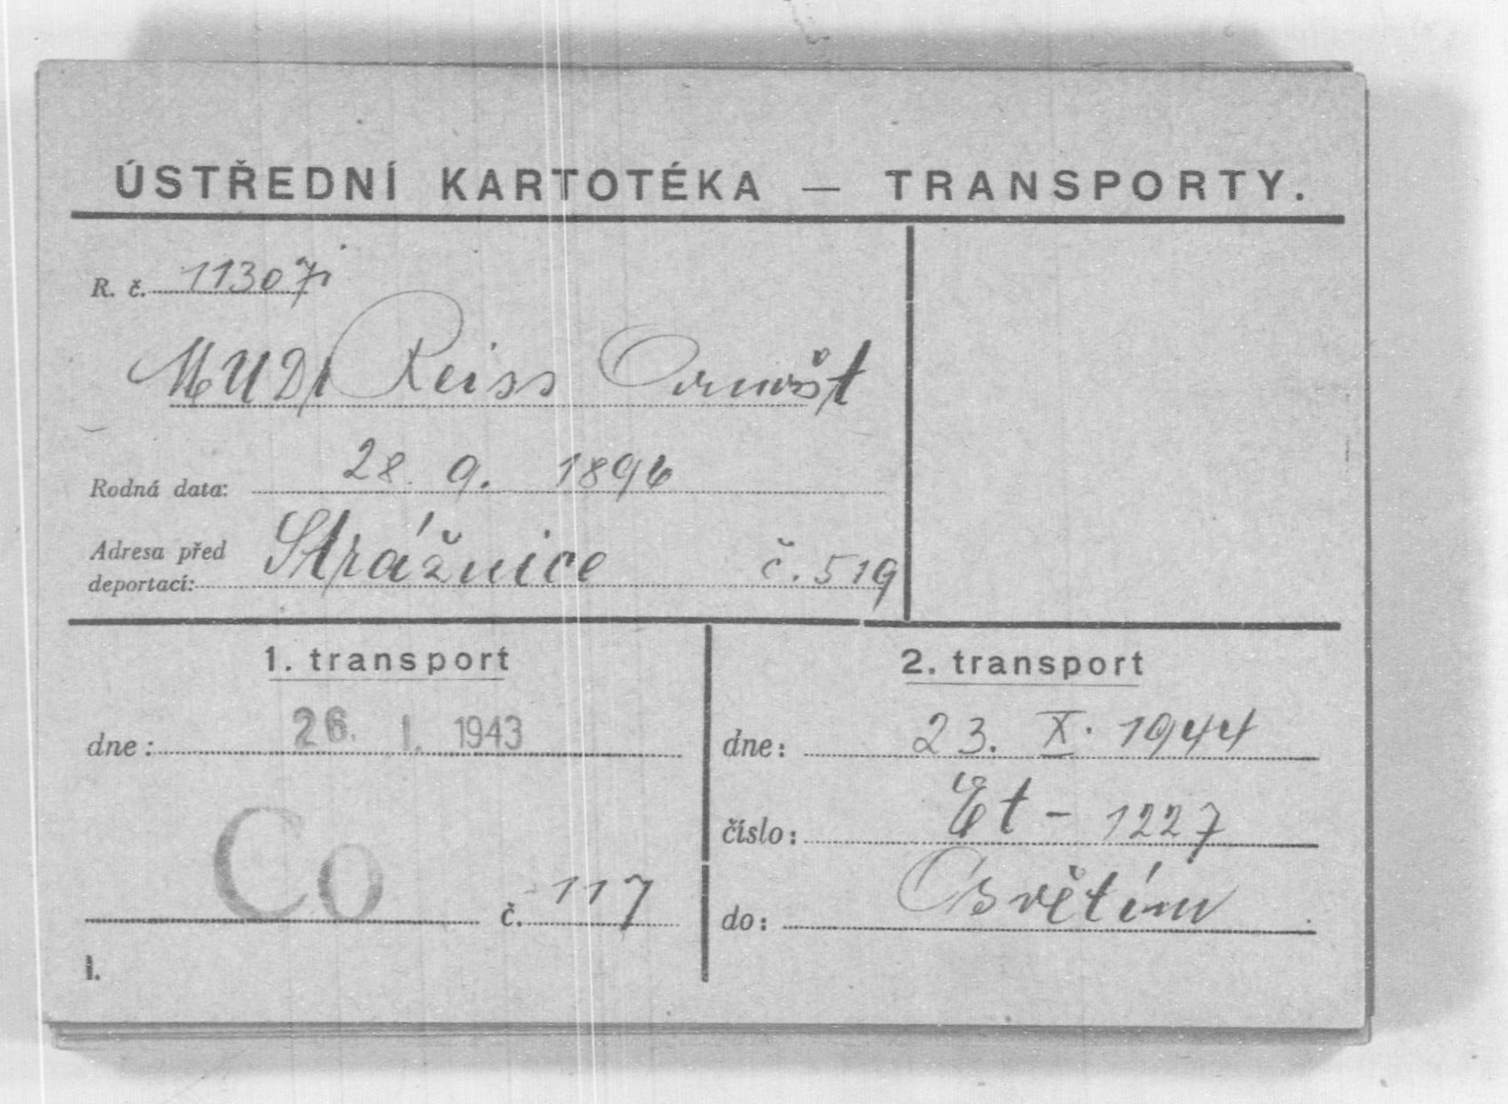 ÚSTŘEDNÍ KARTOTÉKA — TRANSPORTY.
R. č. 11307
MUDr Reiss Arnošt
Rodná data: 28. 9. 1896
Adresa před
deportací: Strážnice č. 519
1. transport
dne: 26. I. 1943
Co č. 117
I.
2. transport
dne: 23. X. 1944
číslo: Et - 1227
do: Osvětim